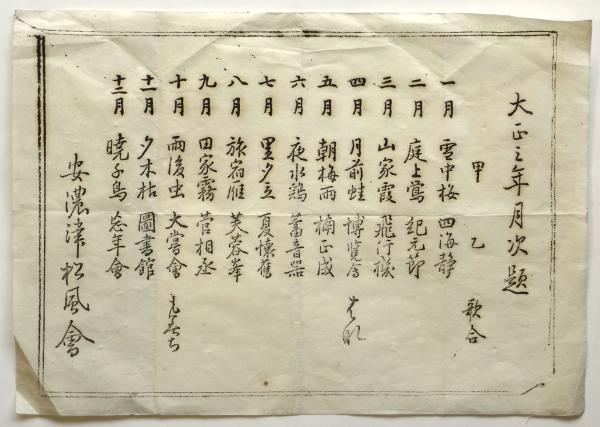 大正三年月次題
甲 乙 歌合
一月 雪中梅 四海静
二月 庭上鶯 紀元節
三月 山家霞 飛行機
四月 月前蛙 博覧会
五月 朝梅雨 楠正成
六月 夜水鶏 蓄音器
七月 里夕立 夏懐舊
八月 旅宿雁 芙蓉峯
九月 田家霧 菅相丞
十月 雨後虫 大嘗會
十一月 夕木枯 圖書館
十二月 暁千鳥 忘年會
安濃津松風會